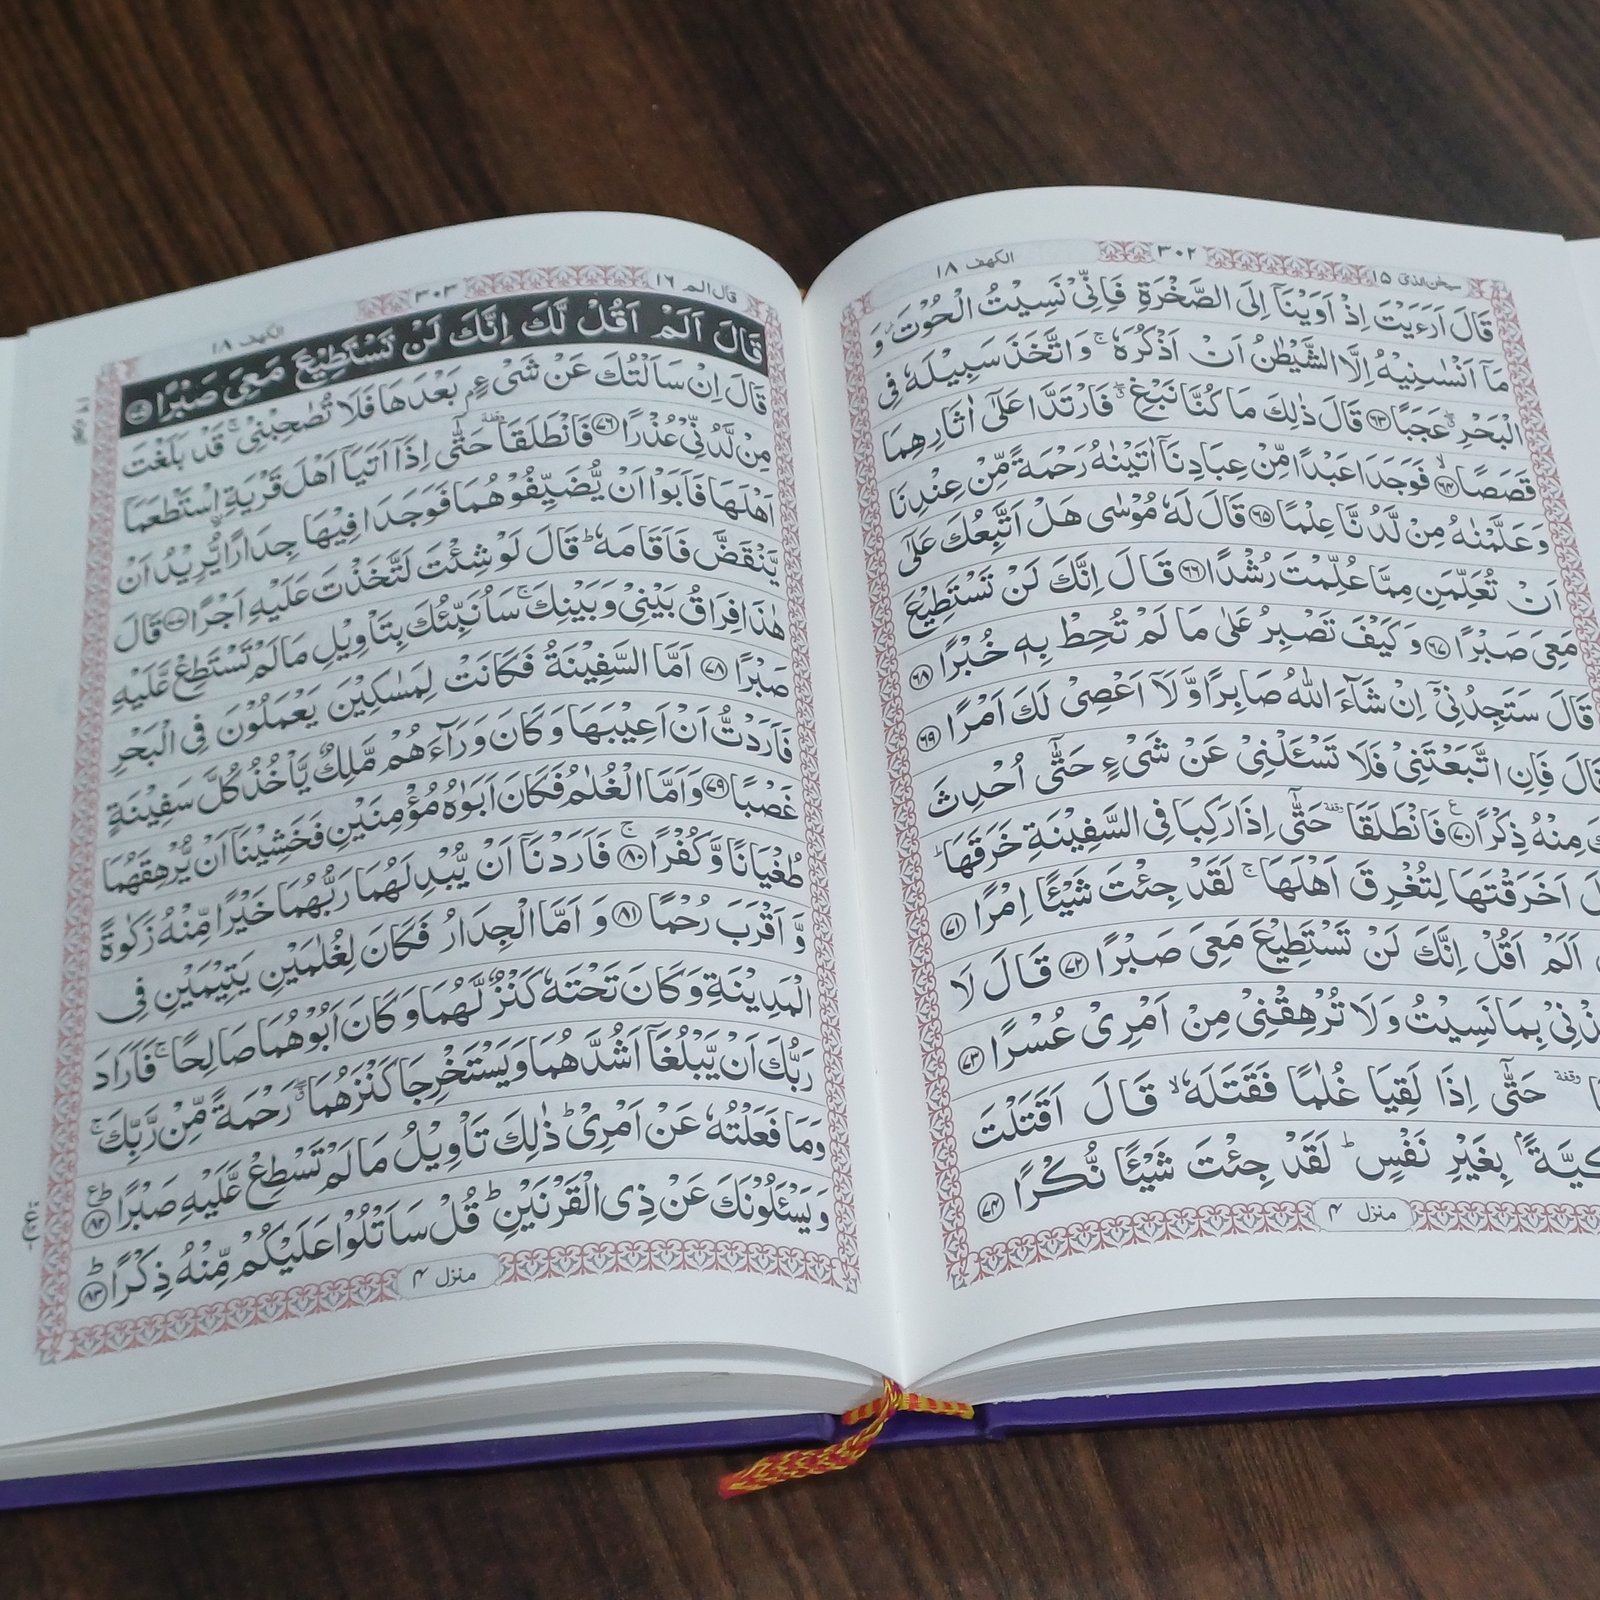 سبحن الذی ١٥
٣٠٢
الکهف ١٨
قَالَ اَرَءَيْتَ اِذْ اَوَيْنَآ اِلَى الصَّخْرَةِ فَاِنِّىْ نَسِيْتُ الْحُوْتَ وَ
مَآ اَنْسٰىنِيْهُ اِلَّا الشَّيْطٰنُ اَنْ اَذْكُرَهٗ ۚ وَاتَّخَذَ سَبِيْلَهٗ فِى
الْبَحْرِ ۖ عَجَبًا ۝٦٣ قَالَ ذٰلِكَ مَا كُنَّا نَبْغِ ۖ فَارْتَدَّا عَلٰٓى اٰثَارِهِمَا
قَصَصًا ۙ ۝٦٤ فَوَجَدَا عَبْدًا مِّنْ عِبَادِنَآ اٰتَيْنٰهُ رَحْمَةً مِّنْ عِنْدِنَا
وَعَلَّمْنٰهُ مِنْ لَّدُنَّا عِلْمًا ۝٦٥ قَالَ لَهٗ مُوْسٰى هَلْ اَتَّبِعُكَ عَلٰٓى
اَنْ تُعَلِّمَنِ مِمَّا عُلِّمْتَ رُشْدًا ۝٦٦ قَالَ اِنَّكَ لَنْ تَسْتَطِيْعَ
مَعِىَ صَبْرًا ۝٦٧ وَكَيْفَ تَصْبِرُ عَلٰى مَا لَمْ تُحِطْ بِهٖ خُبْرًا ۝٦٨
قَالَ سَتَجِدُنِىْٓ اِنْ شَآءَ اللّٰهُ صَابِرًا وَّلَآ اَعْصِىْ لَكَ اَمْرًا ۝٦٩
قَالَ فَاِنِ اتَّبَعْتَنِىْ فَلَا تَسْئَلْنِىْ عَنْ شَىْءٍ حَتّٰٓى اُحْدِثَ
مِنْهُ ذِكْرًا ۝٧٠ فَانْطَلَقَا وقفة حَتّٰٓى اِذَا رَكِبَا فِى السَّفِيْنَةِ خَرَقَهَا ؕ
اَخَرَقْتَهَا لِتُغْرِقَ اَهْلَهَا ۚ لَقَدْ جِئْتَ شَيْئًا اِمْرًا ۝٧١
اَلَمْ اَقُلْ اِنَّكَ لَنْ تَسْتَطِيْعَ مَعِىَ صَبْرًا ۝٧٢ قَالَ لَا
بِمَا نَسِيْتُ وَلَا تُرْهِقْنِىْ مِنْ اَمْرِىْ عُسْرًا ۝٧٣
وقفة حَتّٰٓى اِذَا لَقِيَا غُلٰمًا فَقَتَلَهٗ ۙ قَالَ اَقَتَلْتَ
بِغَيْرِ نَفْسٍ ؕ لَقَدْ جِئْتَ شَيْئًا نُّكْرًا ۝٧٤
منزل ٤
قال الم ١٦
٣٠٣
الکهف ١٨
قَالَ اَلَمْ اَقُلْ لَّكَ اِنَّكَ لَنْ تَسْتَطِيْعَ مَعِىَ صَبْرًا ۝٧٥
قَالَ اِنْ سَاَلْتُكَ عَنْ شَىْءٍ ۢ بَعْدَهَا فَلَا تُصٰحِبْنِىْ ۚ قَدْ بَلَغْتَ
مِنْ لَّدُنِّىْ عُذْرًا ۝٧٦ فَانْطَلَقَا وقفة حَتّٰٓى اِذَآ اَتَيَآ اَهْلَ قَرْيَةِ اِسْتَطْعَمَآ
اَهْلَهَا فَاَبَوْا اَنْ يُّضَيِّفُوْهُمَا فَوَجَدَا فِيْهَا جِدَارًا يُّرِيْدُ اَنْ
يَّنْقَضَّ فَاَقَامَهٗ ؕ قَالَ لَوْ شِئْتَ لَتَّخَذْتَ عَلَيْهِ اَجْرًا ۝٧٧ قَالَ
هٰذَا فِرَاقُ بَيْنِىْ وَبَيْنِكَ ۚ سَاُنَبِّئُكَ بِتَاْوِيْلِ مَا لَمْ تَسْتَطِعْ عَّلَيْهِ
صَبْرًا ۝٧٨ اَمَّا السَّفِيْنَةُ فَكَانَتْ لِمَسٰكِيْنَ يَعْمَلُوْنَ فِى الْبَحْرِ
فَاَرَدْتُّ اَنْ اَعِيْبَهَا وَكَانَ وَرَآءَهُمْ مَّلِكٌ يَّاْخُذُ كُلَّ سَفِيْنَةٍ
غَصْبًا ۝٧٩ وَاَمَّا الْغُلٰمُ فَكَانَ اَبَوٰهُ مُؤْمِنَيْنِ فَخَشِيْنَآ اَنْ يُّرْهِقَهُمَا
طُغْيَانًا وَّكُفْرًا ۚ ۝٨٠ فَاَرَدْنَآ اَنْ يُّبْدِلَهُمَا رَبُّهُمَا خَيْرًا مِّنْهُ زَكٰوةً
وَّاَقْرَبَ رُحْمًا ۝٨١ وَاَمَّا الْجِدَارُ فَكَانَ لِغُلٰمَيْنِ يَتِيْمَيْنِ فِى
الْمَدِيْنَةِ وَكَانَ تَحْتَهٗ كَنْزٌ لَّهُمَا وَكَانَ اَبُوْهُمَا صَالِحًا ۚ فَاَرَادَ
رَبُّكَ اَنْ يَّبْلُغَآ اَشُدَّهُمَا وَيَسْتَخْرِجَا كَنْزَهُمَا ۖ رَحْمَةً مِّنْ رَّبِّكَ ۚ
وَمَا فَعَلْتُهٗ عَنْ اَمْرِىْ ؕ ذٰلِكَ تَاْوِيْلُ مَا لَمْ تَسْطِعْ عَّلَيْهِ صَبْرًا ؕ ۝٨٢
وَيَسْئَلُوْنَكَ عَنْ ذِى الْقَرْنَيْنِ ؕ قُلْ سَاَتْلُوْا عَلَيْكُمْ مِّنْهُ ذِكْرًا ؕ ۝٨٣
منزل ٤